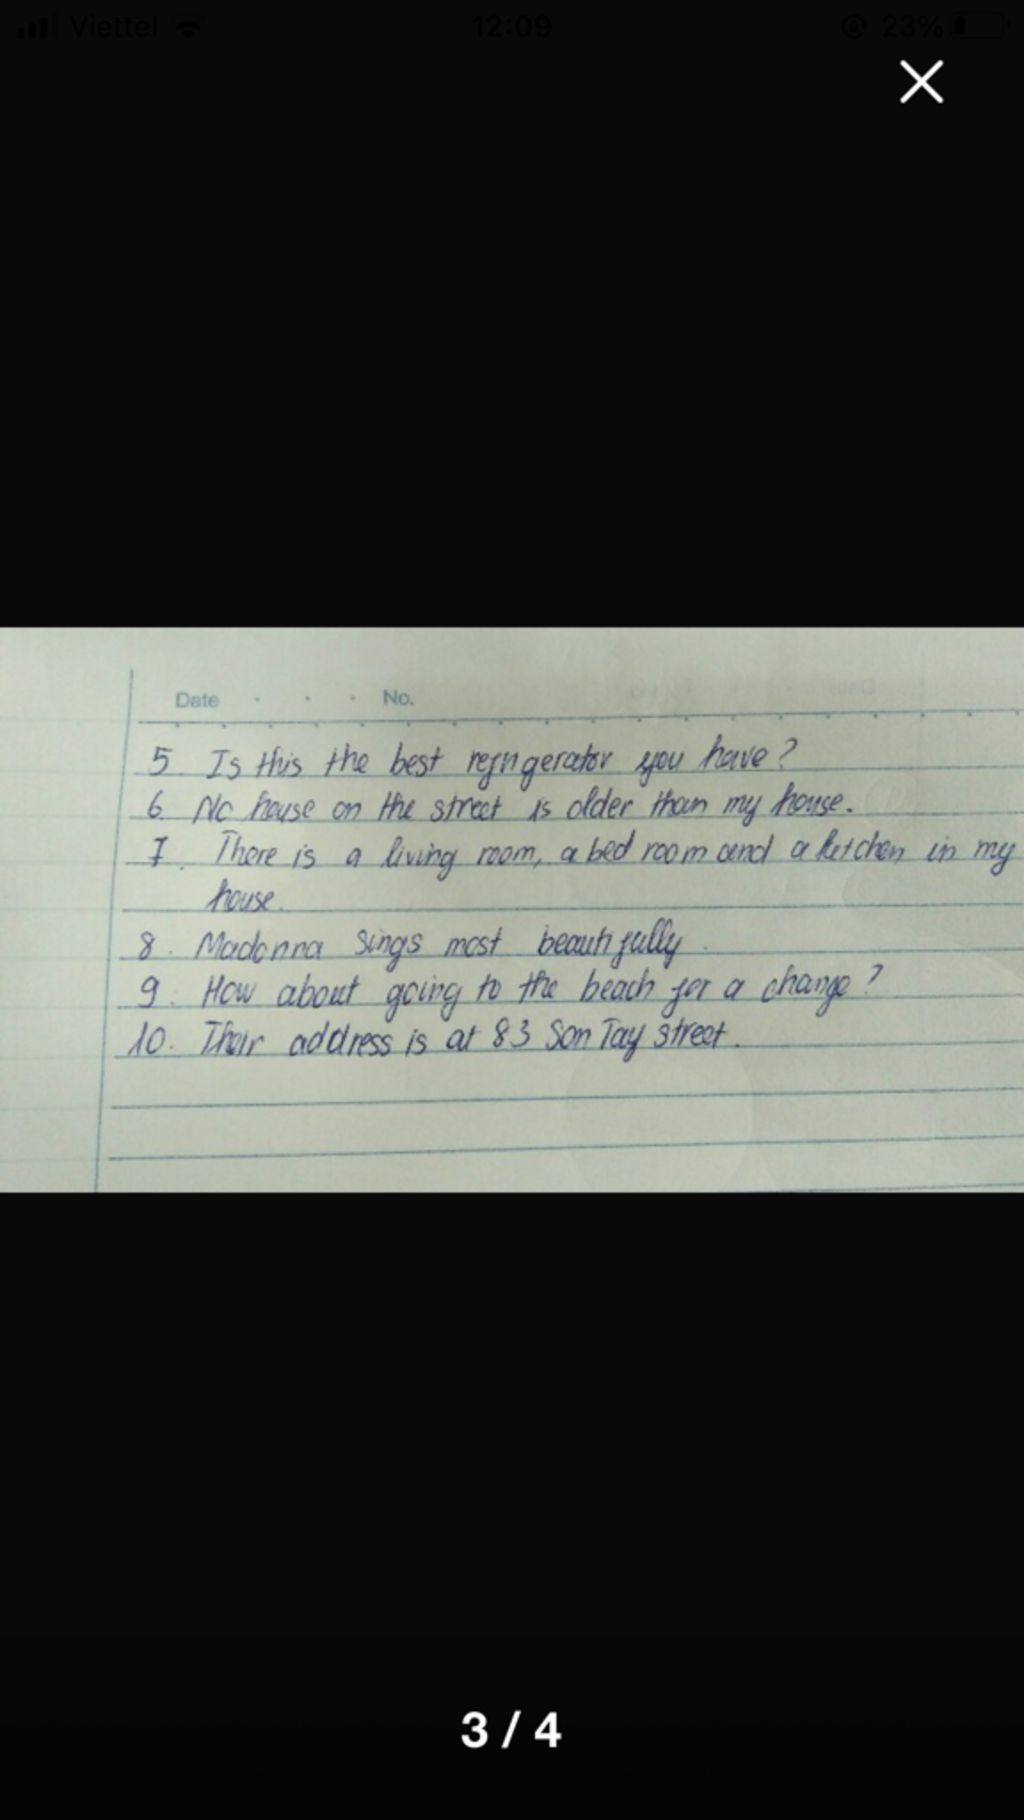 Viettel 12:09 23%
Date No.
5. Is this the best refrigerator you have?
6. No house on the street is older than my house.
7. There is a living room, a bed room and a kitchen in my
house.
8. Madonna sings most beautifully.
9. How about going to the beach for a change?
10. Their address is at 83 Son Tay street.
3 / 4